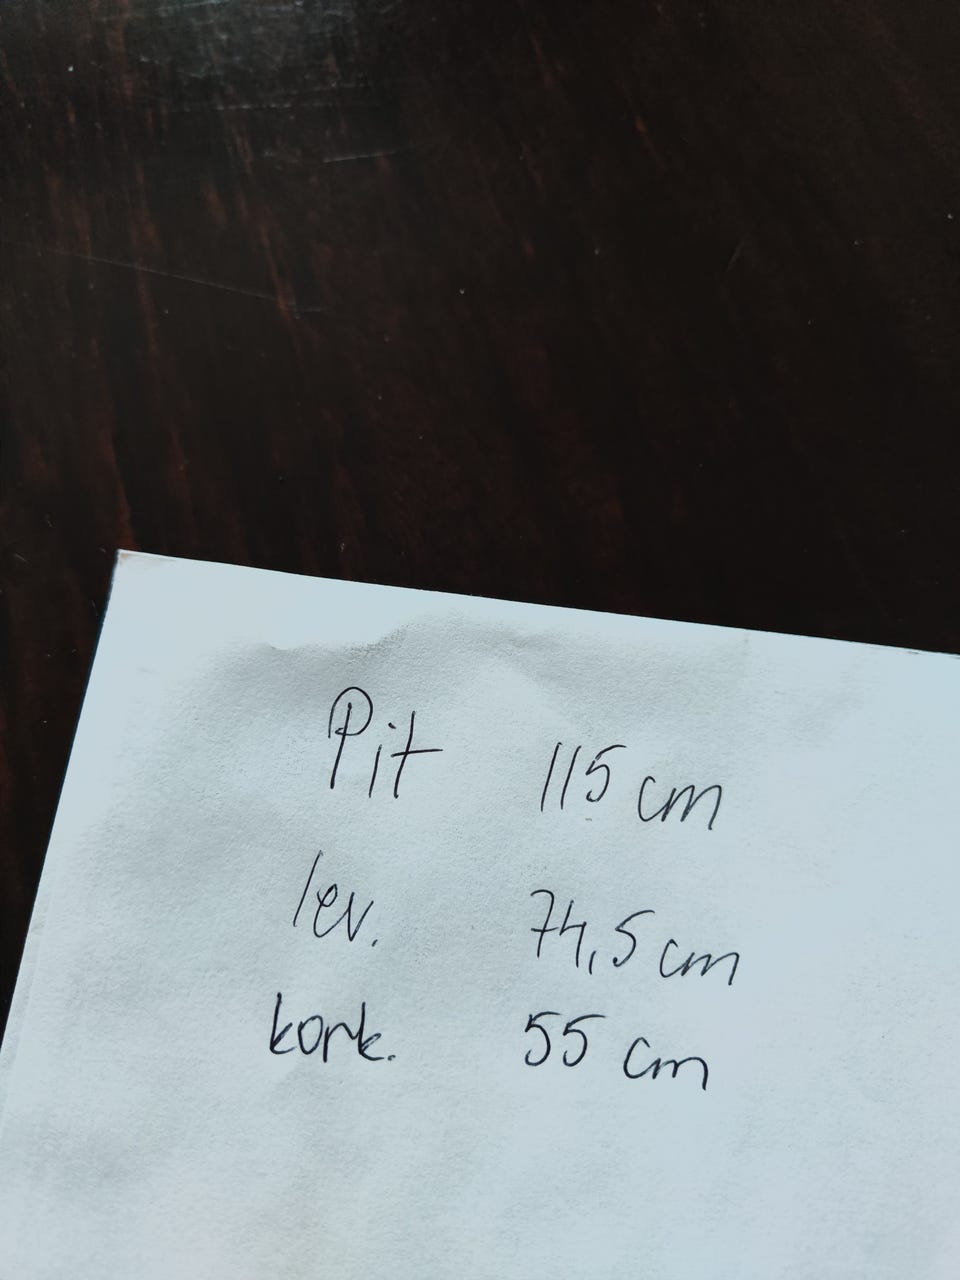 Pit 115 cm
lev. 74,5 cm
kork. 55 cm